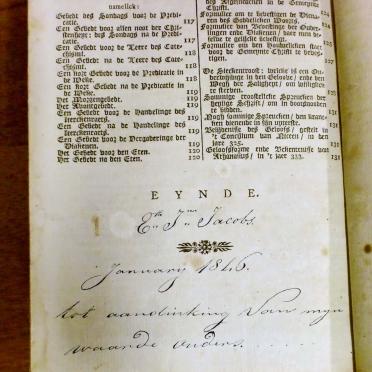 namelick:
Gebedt des Sondags voor de Predicatie. 117
Een Gebedt voor allen noot der Christenheyt; des Sondags na de Predicatie. 117
Een Gebedt voor de Leere des Catechismi. 118
Een Gebedt na de Leere des Catechismi. 118
Een kort Gebedt voor de Predicatie in de Weke. 118
Een kort Gebedt na de Predicatie in de Weke. 119
Het Morgengebedt. 119
Het Avontgebedt. 119
Een Gebedt voor de Handelinge des Kerckenraets. 119
Een Gebedt na de Handelinge des Kerckenraets. 119
Een Gebedt voor de Vergaderinge der Diakenen. 120
Het Gebedt voor den Eten. 120
Het Gebedt na den Eten. 120
in de Gemeynte Christi.
Formulier om te bevestigen de Dienaren des Goddelicken Woorts.
Formulier om Bevestinge der Ouderlingen ende Diakenen
Formulier om den Houwelicken staet voor de Gemeynte Christi te bevestigen.
De Sieckentroost: welcke is een Onderwijsinge in den Geloove, ende den Wegh der Saligheyt, om willighlick te sterven.
Sommige troostelicke Spreucken der heylige Schrift, om in doodtsnooden te bidden.
Nogh sommige Spreucken, den krancken dienende in sijn uyterste. 131
Belijdenisse des Geloofs, gestelt in 't Concilium van Niceen, in den jare 325. 131
Geloofsforme ende Bekentenisse van Athanasius, in 't jaer 333. 131
EYNDE.
Jacobs.
January 1846.
tot aandinking van myn
waarde ouders......